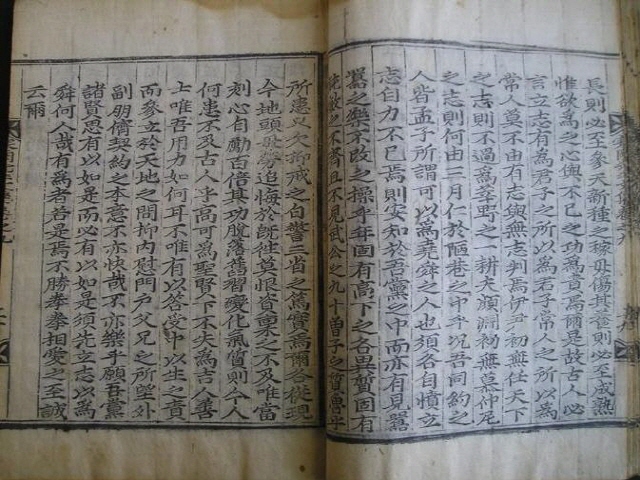 長則必至參天新種之稼毋傷其苗則必至成熟
惟欲爲之心與不已之功爲貴焉爾是故古人必
言立志有爲君子之所以爲君子常人之所以爲
常人莫不由有志與無志判焉伊尹初無任天下
之志則不過爲莘野之一耕夫顔淵初無慕仲尼
之志則何由三月仁於陋巷之中乎凡吾同約之
人皆孟子所謂可以爲堯舜之人也須各自憤立
志自力不已焉則安知於吾黨之中而亦有見囂
囂之樂不改之操乎年固有高下之各異質固有
純駁之不齊且不見武公之九十曾子之質魯乎
所患只欠抑戒之自警三省之篤實焉爾各從現
今地頭發奮追悔於旣往莫恨資稟之不及唯當
刻心自勵百倍其功脫落舊習變化氣質則今人
何患不及古人乎高可爲聖賢下不失爲吉人善
士唯吾用力如何耳不唯有以答受中以生之責
而參立於天地之間抑內慰門戶父兄之所望外
副朋儕契約之本意不亦快哉不亦樂乎願吾黨
諸賢思有以如是而必有以如是須先立志以爲
舜何人哉有爲者若是焉不勝拳拳相愛之至誠
云爾